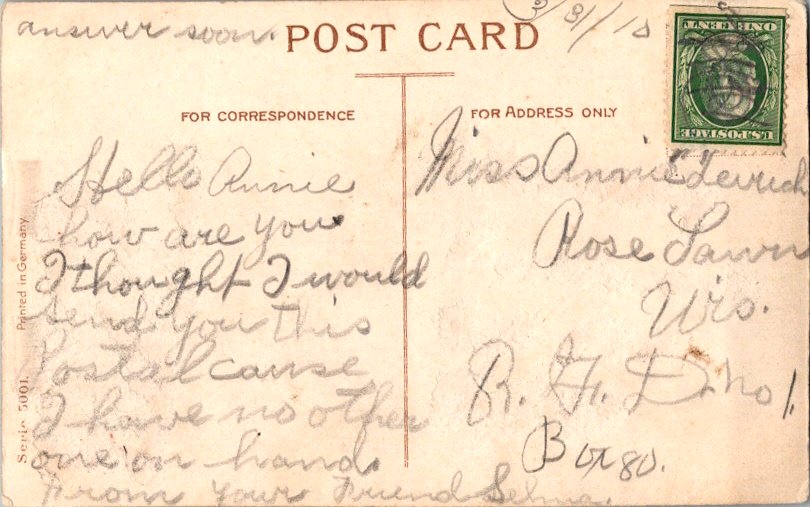 answer soon.
POST CARD
3/31/10
ONE CENT
U.S. POSTAGE
FOR CORRESPONDENCE
FOR ADDRESS ONLY
Hello Annie
how are you
I thought I would
send you this
Postal cause
I have no other
one on hand.
From your Friend Selma.
Miss Annie
Rose Lawn
Wis.
R. F. D. no 1.
Box 80.
Printed in Germany
Serie 5001.